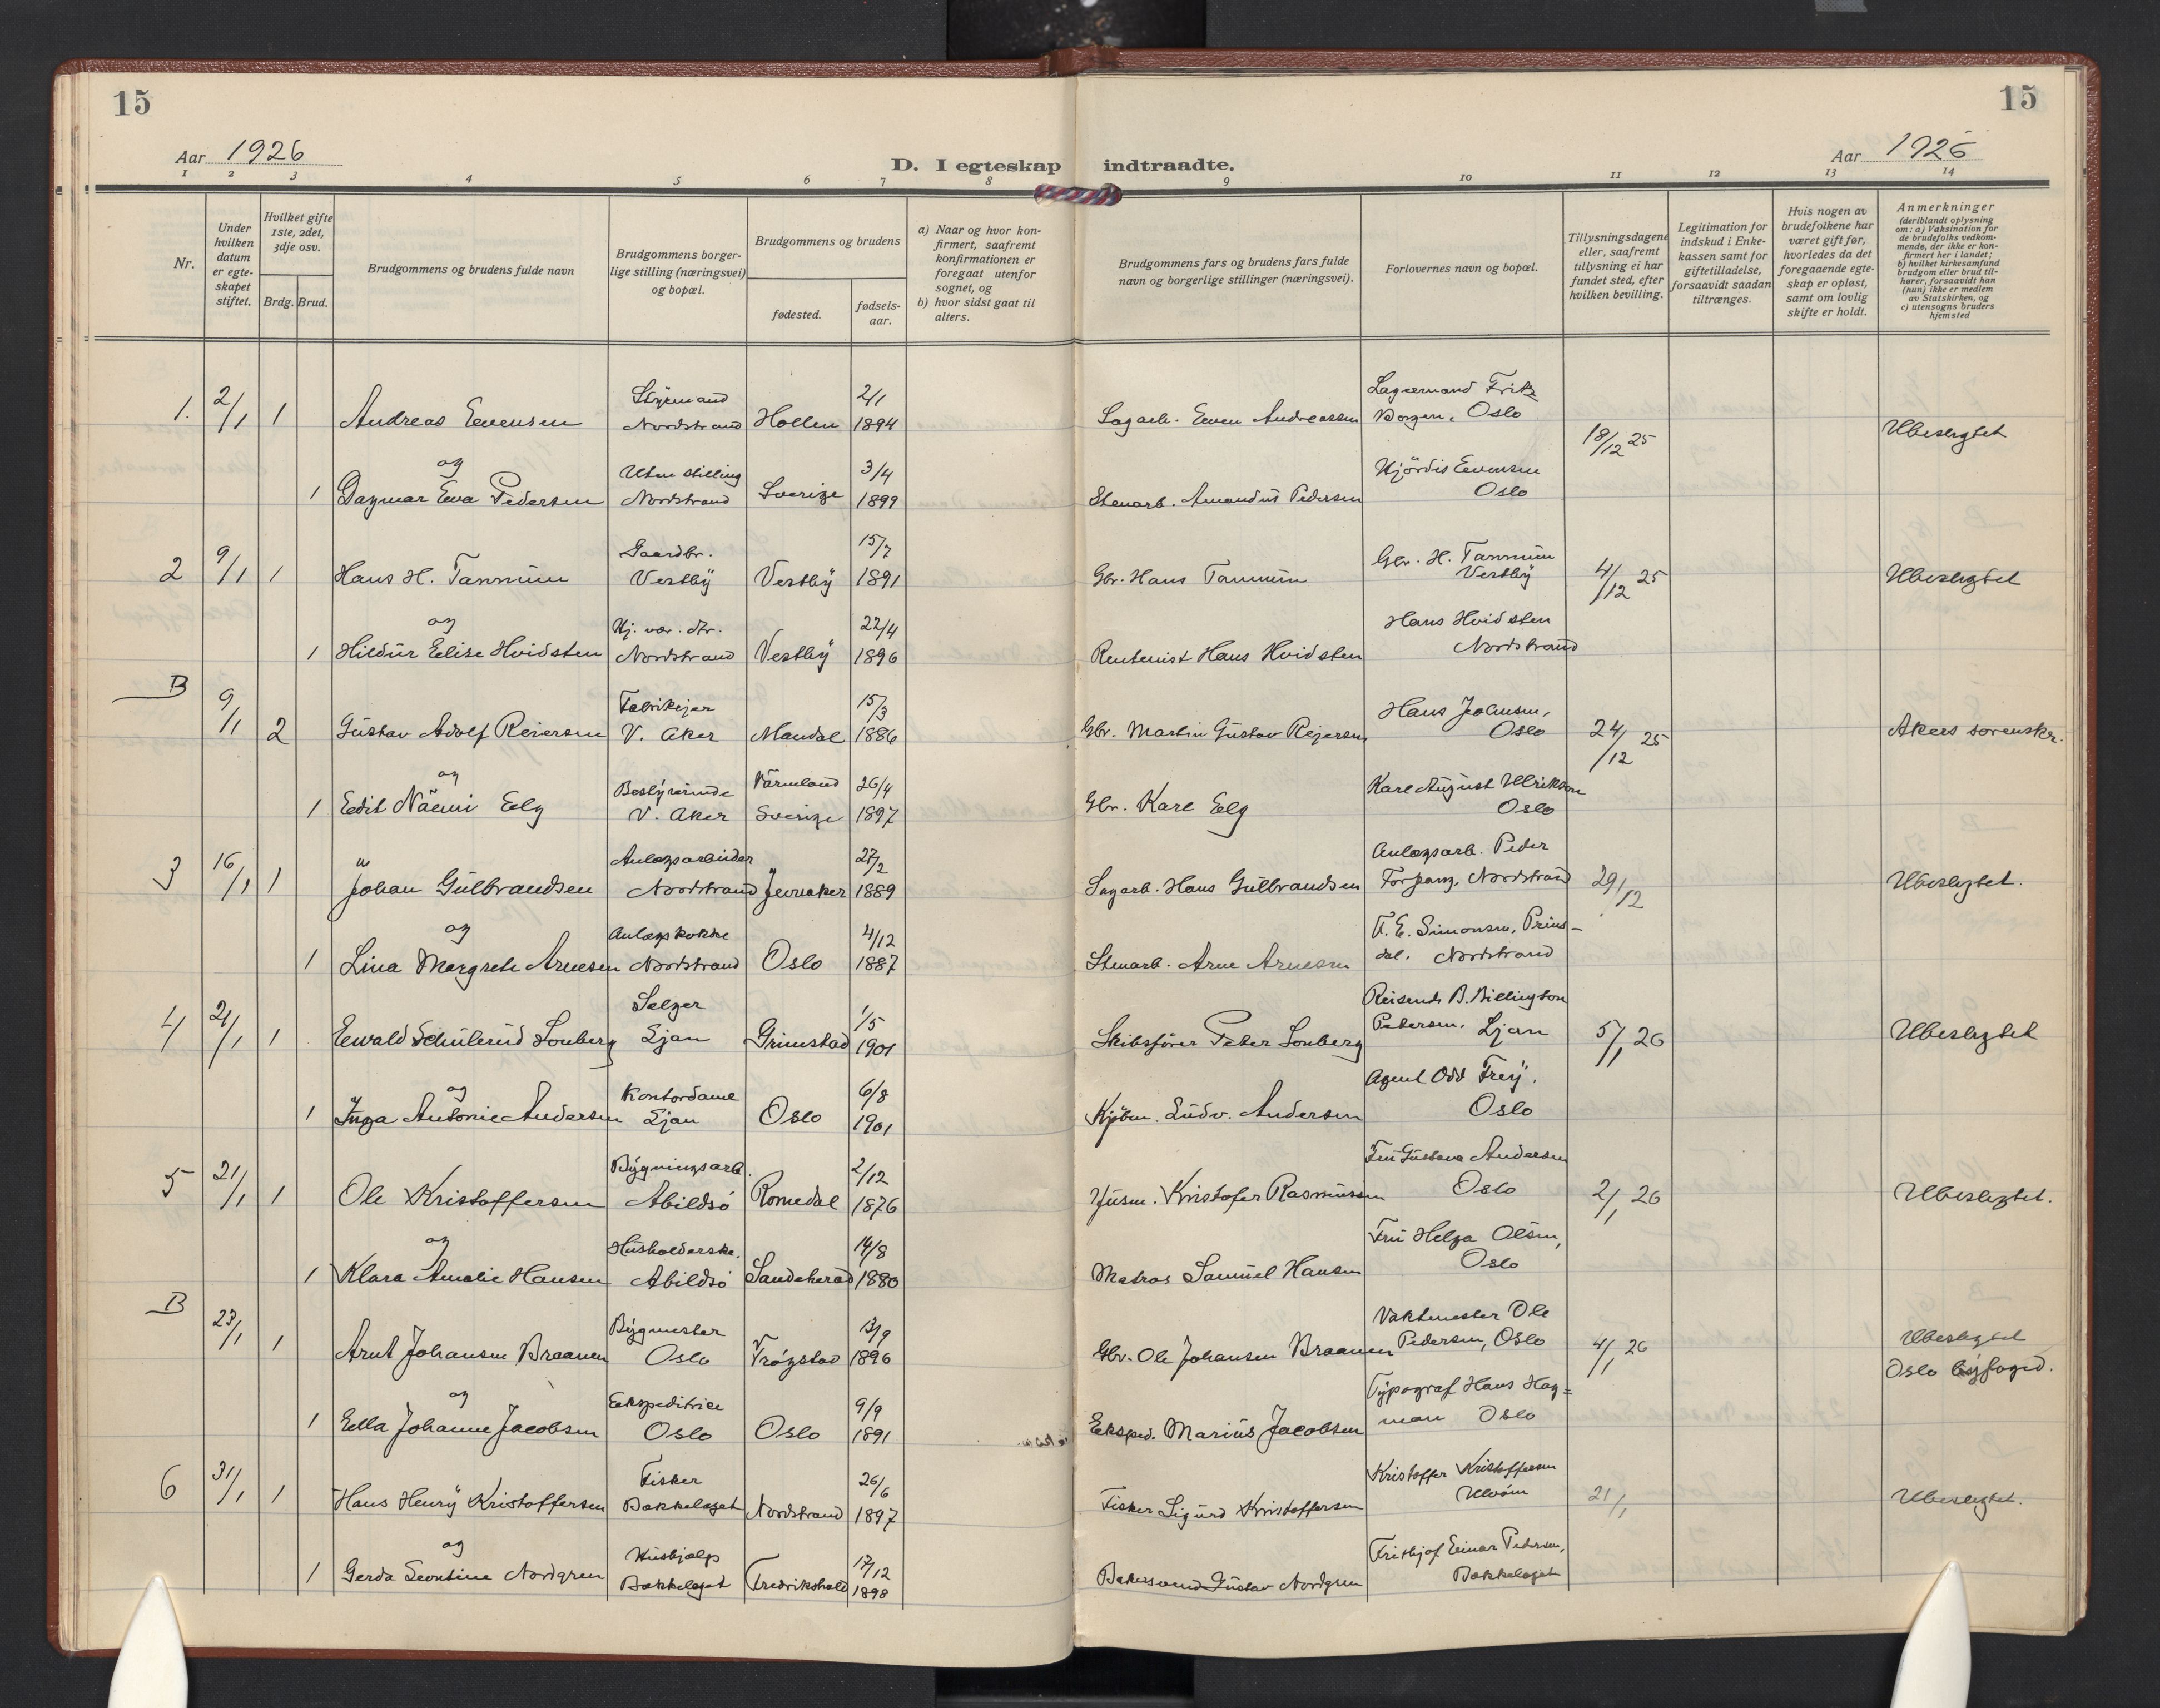 15
15
Aar 1926
D. I egteskap indtraadte.
Aar 1926
1 2 3 4 5 6 7 8 9 10 11 12 13 14
Nr.
Under hvilken datum er egte-skapet stiftet.
Hvilket gifte 1ste, 2det, 3dje osv.
Brdg. Brud.
Brudgommens og brudens fulde navn
Brudgommens borger-lige stilling (næringsvei) og bopæl.
Brudgommens og brudens
fødested.
fødsels-aar.
a) Naar og hvor kon-firmert, saafremt konfirmationen er foregaat utenfor sognet, og
b) hvor sidst gaat til alters.
Brudgommens fars og brudens fars fulde navn og borgerlige stillinger (næringsvei).
Forlovernes navn og bopæl.
Tillysningsdagene eller, saafremt tillysning ei har fundet sted, efter hvilken bevilling.
Legitimation for indskud i Enke-kassen samt for giftetilladelse, forsaavidt saadan tiltrænges.
Hvis nogen av brudefolkene har været gift før, hvorledes da det foregaaende egte-skap er opløst, samt om lovlig skifte er holdt.
Anmerkninger
(deriblandt oplysning om: a) Vaksination for de brudefolks vedkom-mende, der ikke er kon-firmert her i landet; b) hvilket kirkesamfund brudgom eller brud til-hører, forsaavidt han (hun) ikke er medlem av Statskirken, og c) utensogns bruders hjemsted
1. 2/1 1 Andreas Evensen Styrmand Nordstrand Hollen 2/1 1894 Sagarb. Even Andreassen Lagermand Fritz Borgen, Oslo 18/12 25 Ubeslegtet
og
1 Dagmar Eva Pedersen Uten stilling Nordstrand Sverige 3/4 1899 Stenarb. Amandus Pedersen Hjördis Evensen Oslo
2 9/1 1 Hans H. Tannum Gaardbr. Vestby Vestby 15/7 1891 Gbr. Hans Tannum Gbr. H. Tannum Vestby 4/12 25 Ubeslegtet
og
1 Hildur Elise Hvidsten Hj. vær. dtr. Nordstrand Vestby 22/4 1896 Rentenist Hans Hvidsten Hans Hvidsten Nordstrand
B 9/1 2 Gustav Adolf Reiersen Fabrikejer V. Aker Mandal 15/3 1886 Gbr. Martin Gustav Rejersen Hans Johnsen, Oslo 24/12 25 Akers sorenskr.
og
1 Edit Näemi Elg Bestyrerinde V. Aker Värmland Sverige 26/4 1897 Gbr. Karl Elg Karl August Ulrikson Oslo
3 16/1 1 Johan Gulbrandsen Anlægsarbeider Nordstrand Jevnaker 27/2 1889 Sagarb. Hans Gulbrandsen Anlægsarb. Peder Forgang, Nordstrand 29/12 Ubeslegtet.
og
1 Lina Margrete Arnesen Anlægskokke Nordstrand Oslo 4/12 1887 Stenarb. Arne Arnesen F. E. Simonsen, Prins-dal. Nordstrand
4 21/1 1 Ewald Schulerud Lonberg Selger Ljan Grimstad 1/5 1901 Skibsfører Peter Lonberg Reisende B. Billington Pedersen, Ljan 5/1 26 Ubeslegtet
og
1 Inga Antonie Andersen Kontordame Ljan Oslo 6/8 1901 Kjøbm. Ludv. Andersen Agent Odd Frey, Oslo
5 21/1 1 Ole Kristoffersen Bygningsarb. Abildsö Romedal 2/12 1876 Husm. Kristofer Rasmussen Fru Gustava Andersen Oslo 2/1 26 Ubeslegtet.
og
1 Klara Amalie Hansen Husholderske. Abildsö Sandeherad 14/8 1880 Matros Samuel Hansen Fru Helga Olsen, Oslo
B 23/1 1 Arnt Johansen Braanen Bygmester Oslo Trögstad 13/9 1896 Gbr. Ole Johansen Braanen Vaktmester Ole Pedersen, Oslo 4/1 26 Ubeslegtet Oslo byfoged.
og
1 Ella Johanne Jacobsen Ekspeditrice Oslo Oslo 9/9 1891 Eksped. Marius Jacobsen Typograf Hans Hag=man Oslo
6 31/1 1 Hans Henry Kristoffersen Fisker Bækkelaget Nordstrand 26/6 1897 Fisker Sigurd Kristoffersen Kristoffer Kristoffersen Ulvöen 21/1 Ubeslegtet.
og
1 Gerda Leontine Nordgren Hushjælp Bækkelaget Fredrikshald 17/12 1898 Bakersvend Gustav Nordgren Frithjof Einar Pedersen, Bækkelaget